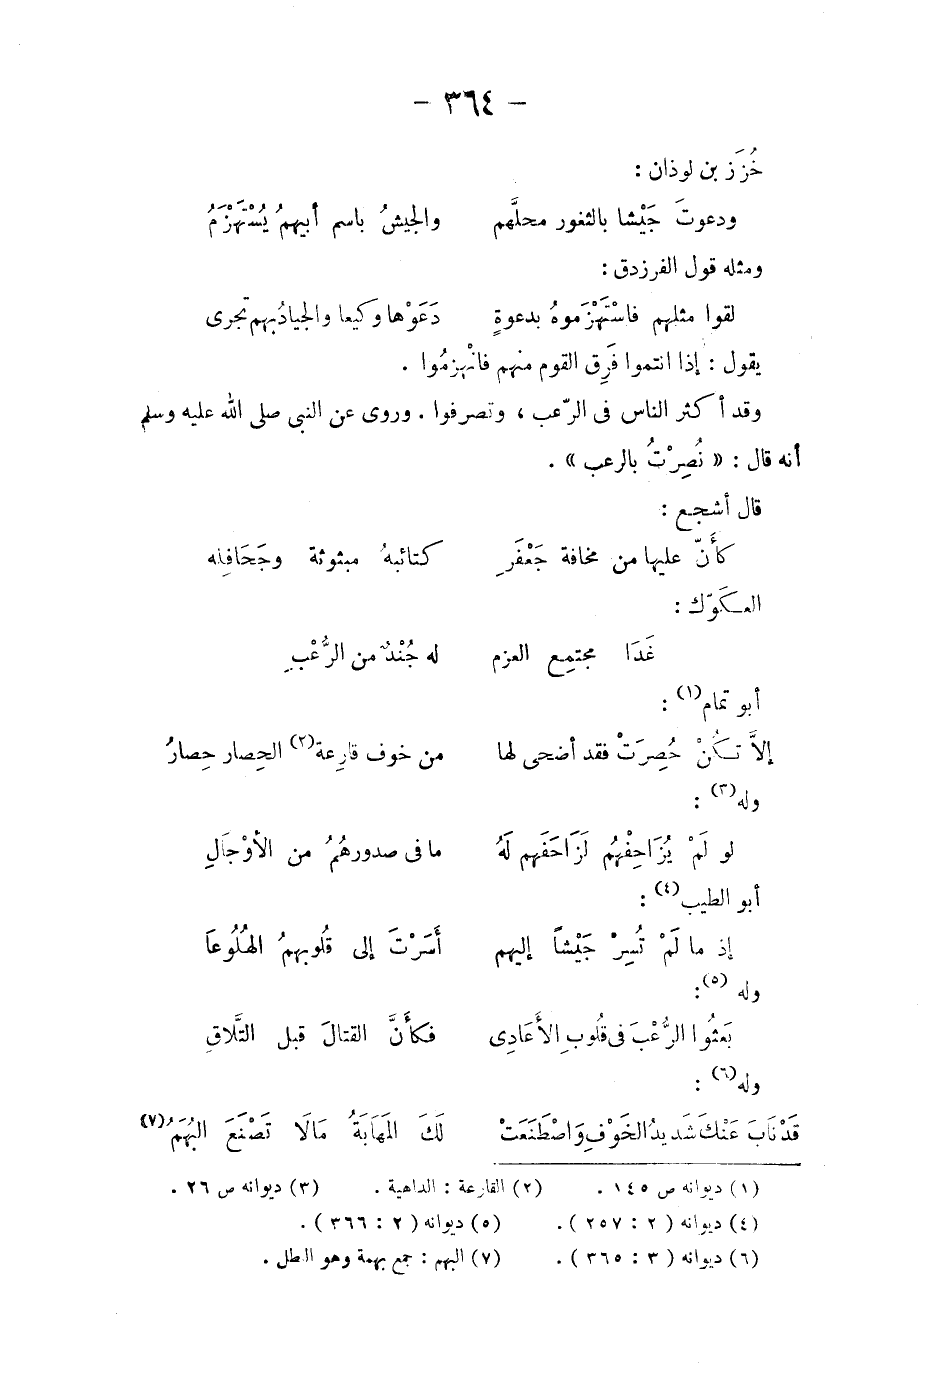 – ٣٦٤ –
خُزَز بن لوذان :
ودعوتَ جَيْشا بالثغور محلَّهم والجيشُ باسم أبيهمُ يُسْتَهْزَمُ
ومثله قول الفرزدق :
لقوا مثلهم فاسْتَهْزَموهُ بدعوةٍ دَعَوْها وكيعا والجيادُ بهم تجرى
يقول : إذا انتموا فَرِق القوم منهم فانْهزمُوا .
وقد أكثر الناس فى الرّعب ، وتصرفوا . وروى عن النبى صلى الله عليه وسلم
أنه قال : « نُصِرْتُ بالرعب » .
قال أشجع :
كأَنّ عليها من مخافة جَعْفَرِ كتائبهُ مبثوثة وجَحَافِله
العكَوّك :
غَدَا مجتمِع العزم له جُنْدٌ من الرُّعْبِ
أبو تمام(١) :
إلاَّ تكُنْ حُصِرَتْ فقد أضحى لها من خوف قارِعة(٢) الحِصار حِصارُ
وله(٣) :
لو لَمْ يُزَاحِفْهُم لَزَاحَفَهم لَهُ ما فى صدورهُمُ من الأوْجَالِ
أبو الطيب(٤) :
إذ ما لَمْ تُسِرْ جَيْشاً إليهم أَسَرْتَ إلى قُلُوبهمُ الهُلُوعاَ
وله (٥) :
بَعَثُوا الرُّعْبَ فى قُلُوبِ الأَعَادِى فكأَنَّ القتالَ قبل التَّلاقِ
وله(٦) :
قَدْ نَابَ عَنْكَ شَديدُ الخَوْفِ وَاصْطَنَعَتْ لَكَ المَهَابَةُ مَالاَ تَصْنَعَ البُهَمُ(٧)
(١) ديوانه ص ١٤٥ . (٢) القارعة : الداهية . (٣) ديوانه ص ٢٦ .
(٤) ديوانه ( ٢ : ٢٥٧ ) . (٥) ديوانه ( ٢ : ٣٦٦ ) .
(٦) ديوانه ( ٣ : ٣٦٥ ) . (٧) البهم : جمع بهمة وهو البطل .